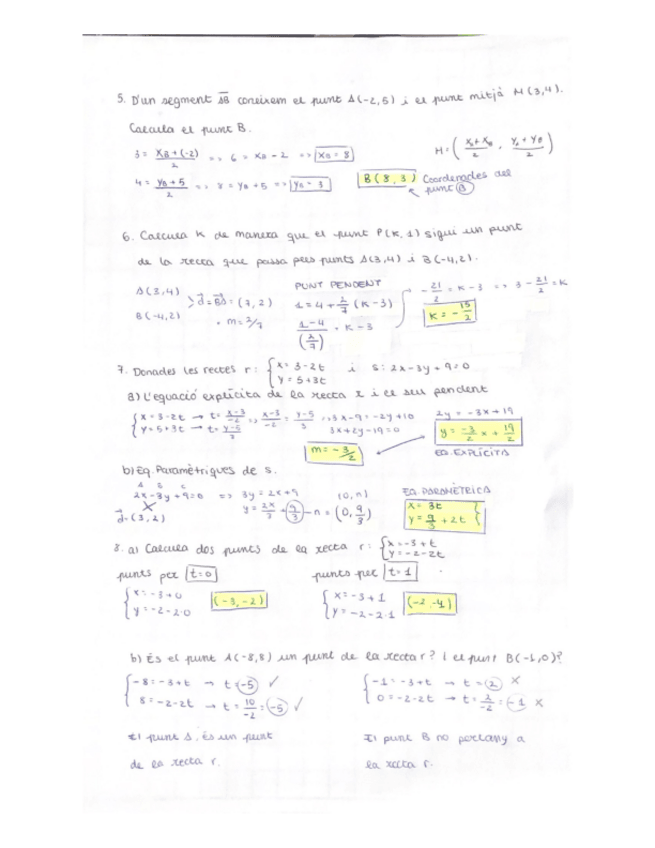 5. D'un segment AB coneixem el punt A(-2,5) i el punt mitjà M(3,4).
Calcula el punt B.
3 = (xB+(-2))/2 => 6 = xB - 2 => xB = 8
M = ( (xA+xB)/2 , (yA+yB)/2 )
4 = (yB+5)/2 => 8 = yB + 5 => yB = 3
B(8,3) Coordenades del punt B
6. Calcula K de manera que el punt P(K,1) sigui un punt
de la recta que passa pels punts A(3,4) i B(-4,2).
A(3,4)
B(-4,2)
d = BA = (7,2)
m = 2/7
PUNT PENDENT
1 = 4 + 2/7 (K-3)
(1-4)/(2/7) = K-3
-21/2 = K-3 => 3 - 21/2 = K
K = -15/2
7. Donades les rectes r: { x = 3-2t i s: 2x-3y+9=0
y = 5+3t
a) L'equació explícita de la recta r i el seu pendent
{ x = 3-2t → t = (x-3)/-2 => (x-3)/-2 = (y-5)/3 => 3x-9 = -2y+10
y = 5+3t → t = (y-5)/3 3x+2y-19=0
2y = -3x+19
y = -3/2 x + 19/2
m = -3/2
EQ. EXPLÍCITA
b) Eq. Paramètriques de s.
A B C
2x-3y+9=0 => 3y = 2x+9
y = 2x/3 + 9/3 - n = (0, 9/3)
(0,n)
d = (3,2)
EQ. PARAMÈTRICA
x = 3t
y = 9/3 + 2t
8. a) Calcula dos punts de la recta r: { x = -3+t
y = -2-2t
punts per t=0
{ x = -3+0
y = -2-2·0
(-3,-2)
punts per t=1
{ x = -3+1
y = -2-2·1
(-2,-4)
b) És el punt A(-8,8) un punt de la recta r? I el punt B(-1,0)?
{ -8 = -3+t → t = -5 ✓
8 = -2-2t → t = 10/-2 = -5 ✓
El punt A, és un punt
de la recta r.
{ -1 = -3+t → t = 2 x
0 = -2-2t → t = 2/-2 = -1 x
El punt B no pertany a
la recta r.